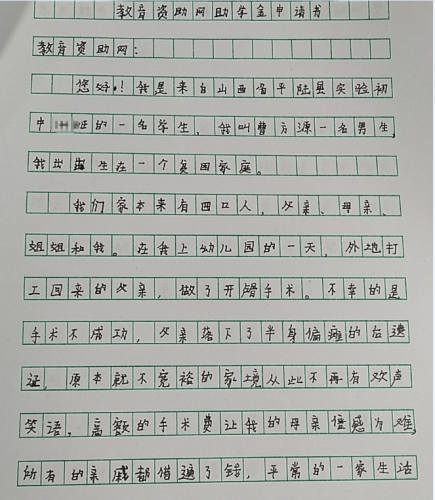 教育资助网助学金申请书
教育资助网:
您好!我是来自山西省平陆县实验初
中班的一名学生,我叫曹方源一名男生,
我出生在一个贫困家庭。
我们家本来有四口人,父亲、母亲、
姐姐和我。在我上幼儿园的一天,外地打
工回来的父亲,做了开颅手术。不幸的是
手术不成功,父亲落下了半身偏瘫的后遗
证,原本就不宽裕的家境从此不再有欢声
笑语,高额的手术费让我的母亲倍感为难,
所有的亲戚都借遍了钱,平常的一家生活